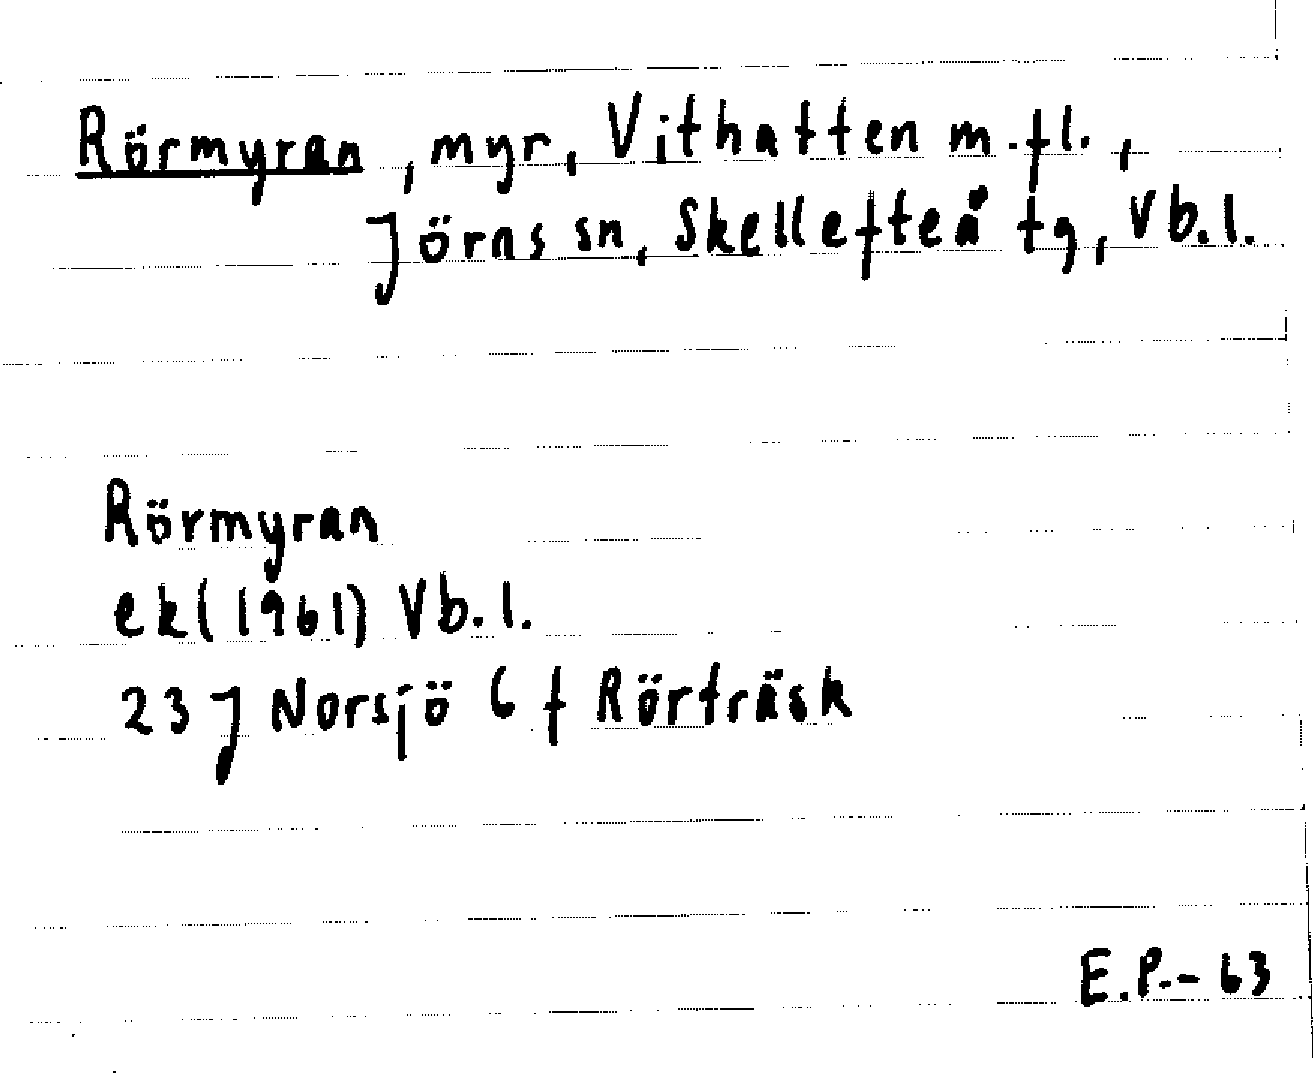 Rörmyran, myr, Vithatten m.fl.,
Jörns sn, Skellefteå tg, Vb.l.
Rörmyran
ek(1961) Vb.l.
23 J Norsjö 6 f Rörträsk
E.P.-63